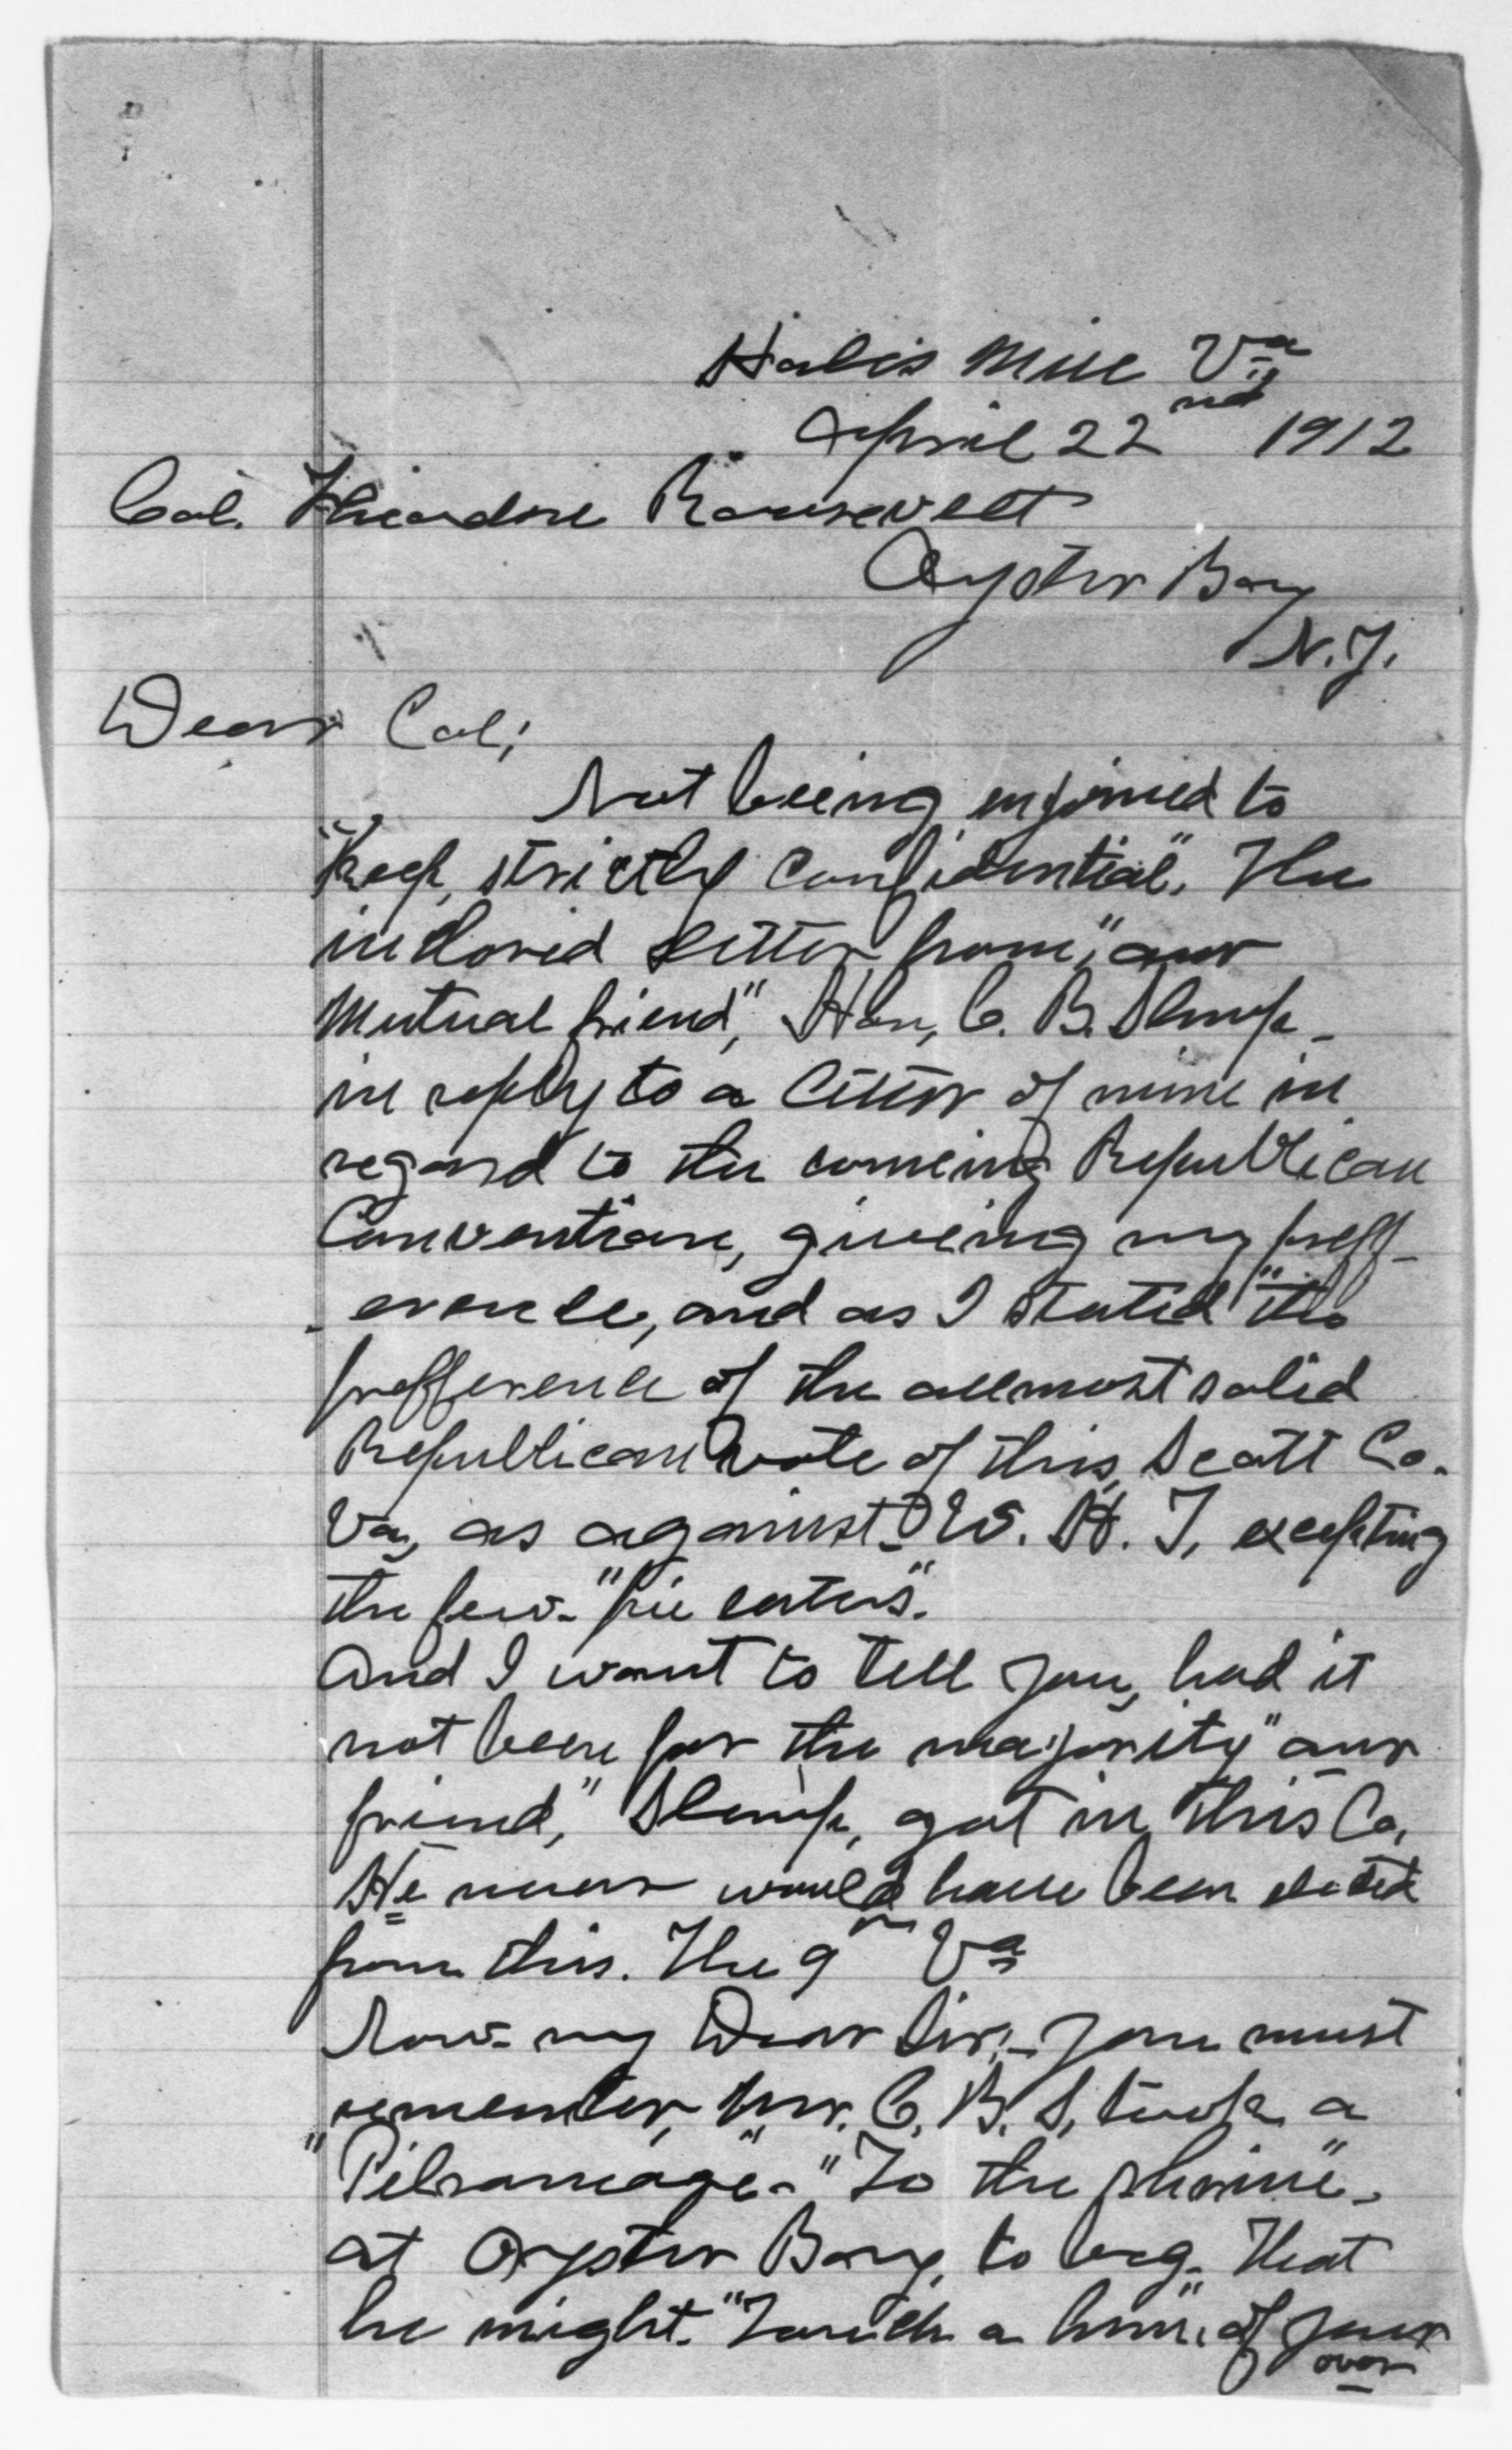 Hales Mill Va
April 22nd 1912
Col. Theodore Roosevelt
Oyster Bay
N.Y.
Dear Col;
Not being enjoined to
"Keep, strictly confidential", The
inclosed letter from, "our
Mutual friend," Hon, C. B. Slemp -
in reply to a letter of mine in
regard to the comeing Republican
Convention, giveing my preff-
erence, and as I stated "the
prefference of the allmost solid
Republican vote of this, Scott Co.
Va, as against - W. H. T, excepting
the few - "pie eaters".
And I want to tell you, had it
not been for the majority "our
friend," Slemp, got in this Co,
He never would have been elected
from this. The 9th Va
Now - my Dear Sir, - you must
remember, Mr. C. B. S, took a
"Pilgramage" - "To the shrine" -
at Oyster Bay, to beg - that
he might - "Touch a hem", of your
over